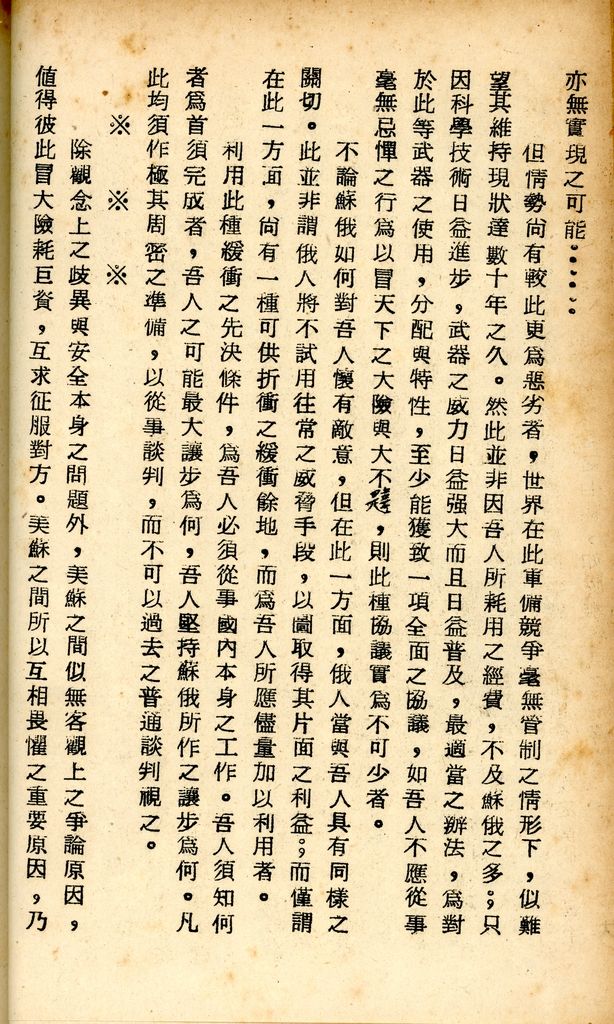 亦無實現之可能……
但情勢尙有較此更爲惡劣者，世界在此軍備競爭毫無管制之情形下，似難
望其維持現狀達數十年之久。然此並非因吾人所耗用之經費，不及蘇俄之多；只
因科學技術日益進步，武器之威力日益强大而且日益普及，最適當之辦法，爲對
於此等武器之使用，分配與特性，至少能獲致一項全面之協議，如吾人不應從事
毫無忌憚之行爲以冒天下之大險與大不韙，則此種協議實爲不可少者。
不論蘇俄如何對吾人懷有敵意，但在此一方面，俄人當與吾人具有同樣之
關切。此並非謂俄人將不試用往常之威脅手段，以圖取得其片面之利益；而僅謂
在此一方面，尙有一種可供折衝之緩衝餘地，而爲吾人所應儘量加以利用者。
利用此種緩衝之先決條件，爲吾人必須從事國內本身之工作。吾人須知何
者爲首須完成者，吾人之可能最大讓步爲何，吾人堅持蘇俄所作之讓步爲何。凡
此均須作極其周密之準備，以從事談判，而不可以過去之普通談判視之。
※　※　※
除觀念上之歧異與安全本身之問題外，美蘇之間似無客觀上之爭論原因，
値得彼此冒大險耗巨資，互求征服對方。美蘇之間所以互相畏懼之重要原因，乃